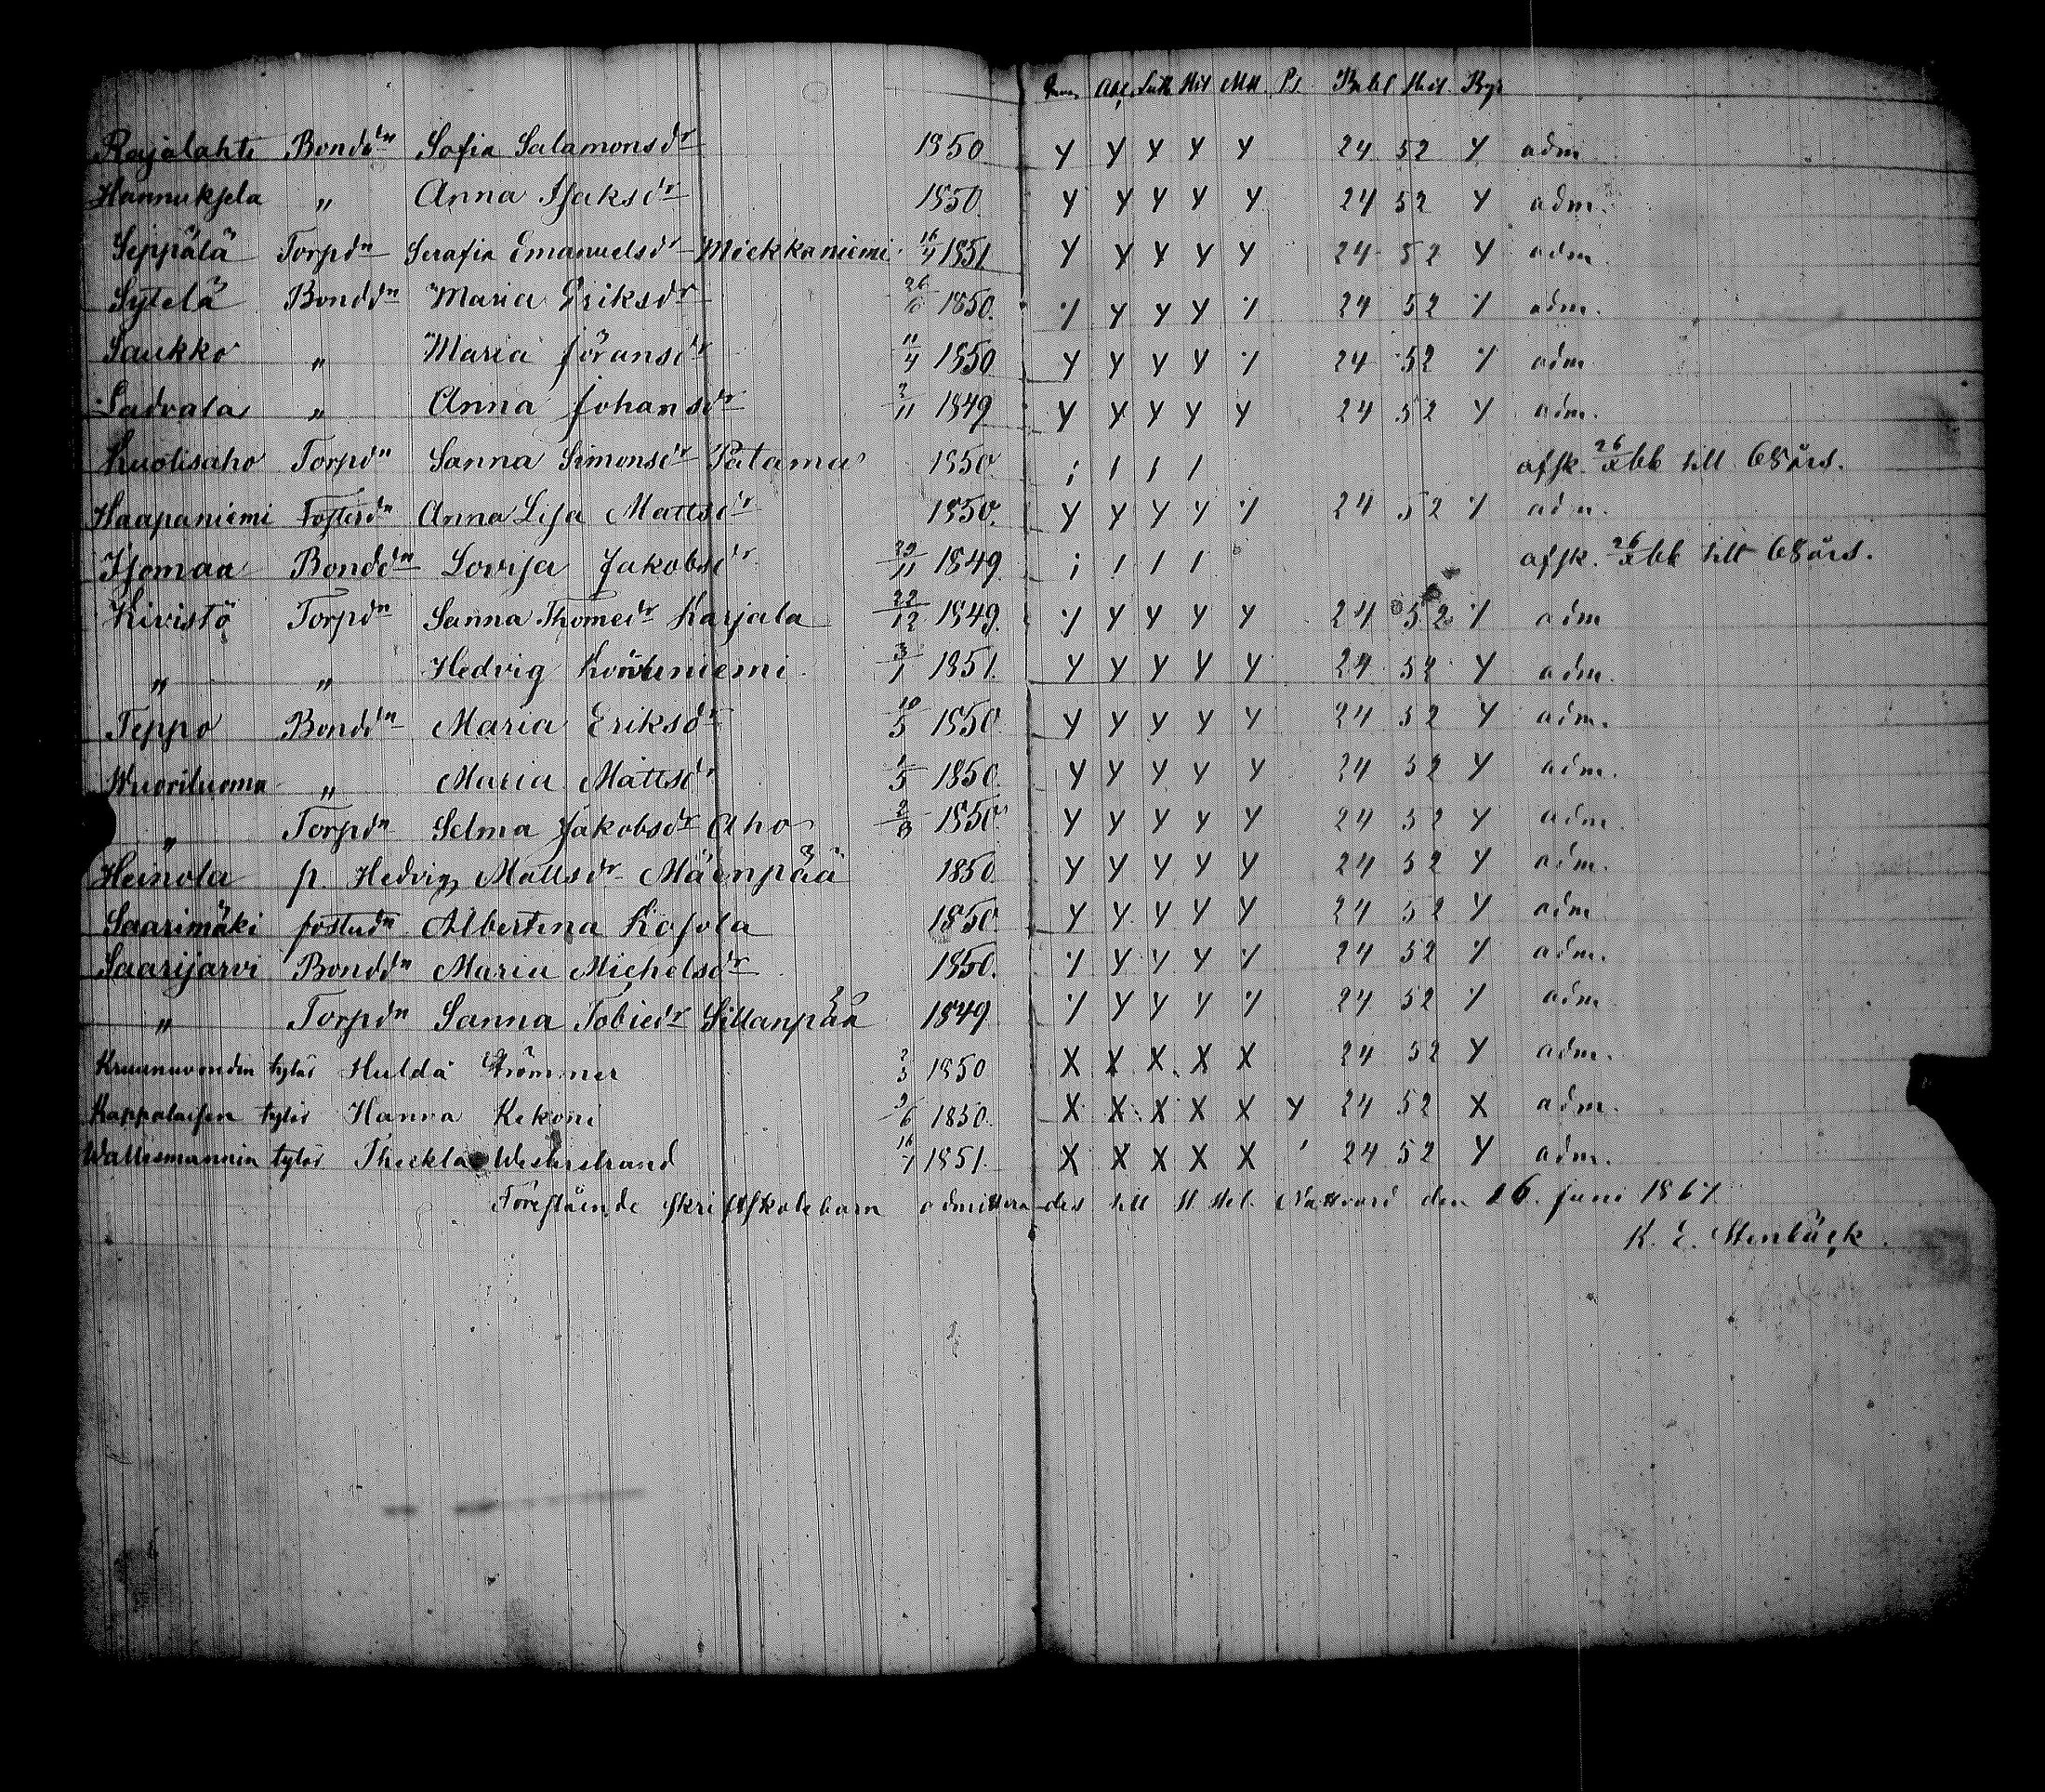 Abc Luth Hit Mtt Ps. Bibl Hist. Byr
Rajalahti Bondedn Sofia Salamonsdr 1850 Y Y Y Y Y 24 52 Y adm
Hannuksela " Anna Isaksdr 1850. Y Y Y Y Y 24 52 Y adm.
Seppälä Torpdn Serafia Emanuelsdr Miekkaniemi 16/4 1851 Y Y Y Y Y 24 52 Y adm.
Sytelä Bonddn Maria Eriksdr 26/6 1850. Y Y Y Y Y 24 52 Y adm.
Saukko " Maria Jöransdr 11/4 1850 Y Y Y Y Y 24 52 Y adm
Ladvala " Anna Johansdr 2/11 1849 Y Y Y Y Y 24 52 Y adm.
Kuolisaho Torpdn Sanna Simonsdr Patama 1850 / / / / afsk. 26/x 66 till 68 års.
Haapaniemi Fosterdn Anna Lisa Mattsdr 1850. Y Y Y Y Y 24 52 Y adm.
Isomaa Bonddn Lovisa Jakobsdr 29/11 1849. / / / / afsk. 26/x 66 till 68 års.
Kivistö Torpdn Sanna Thomedr Karjala 22/12 1849. Y Y Y Y Y 24 52 Y adm
" " Hedvig 3/1 1851. Y Y Y Y Y 24 52 Y adm.
Teppo Bonddn Maria Eriksdr 10/5 1850 Y Y Y Y Y 24 52 Y adm.
Wuoriluoma " Maria Mattsdr 1/5 1850. Y Y Y Y Y 24 52 Y adm.
" Torpdn Selma Jakobsdr Aho 2/8 1850 Y Y Y Y Y 24 52 Y adm.
Heinola p. Hedvig Mattsdr Mäenpää 1850 Y Y Y Y Y 24 52 Y adm.
Saarimäki fosterdn Albertina Kojola 1850 Y Y Y Y Y 24 52 Y adm
Saarijarvi Bonddn Maria Michelsdr 1850. Y Y Y Y Y 24 52 Y adm.
" Torpdn Sanna Tobiedr Sillanpää 1849 Y Y Y Y Y 24 52 Y adm
Kruunuvoudin tytär Hulda Strömmer 2/3 1850 X X X X X 24 52 Y adm.
Kappalaisen tytär Hanna Kekoni 2/6 1850. X X X X X Y 24 52 X adm.
Wallesmannin tytär Theckla Westerstrand 16/1 1851. X X X X X ' 24 52 Y adm.
Förestående skriftskolebarn admitterades till H. Hel. Nattvard den 16. juni 1867
K. E. Stenbäck.